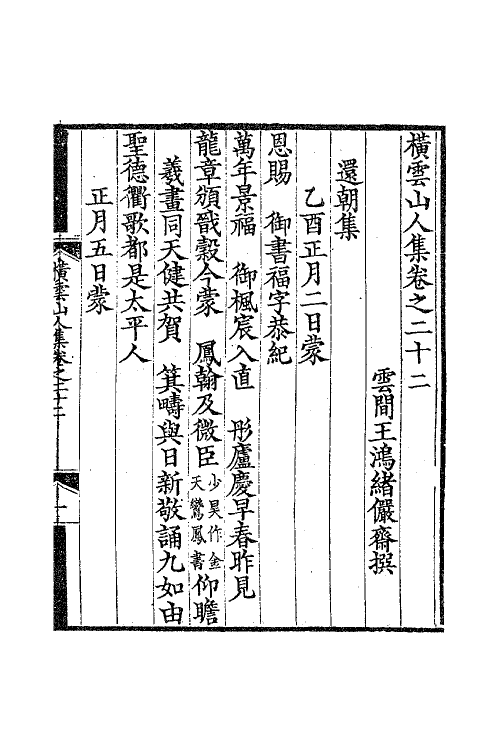 橫雲山人集卷之二十二
雲間王鴻緒儼齋撰
還朝集
乙酉正月二日蒙
恩賜 御書福字恭紀
萬年景福 御楓宸入直 彤廬慶早春昨見
龍章頒戩穀今蒙 鳳翰及微臣少昊作金天鸞鳳書仰瞻
羲畫同天健共賀 箕疇與日新敬誦九如由
聖德衢歌都是太平人
正月五日蒙
橫雲山人集卷之二十二
一